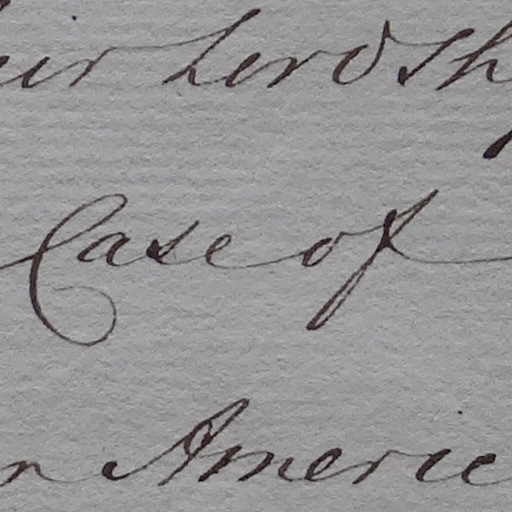 eir Lordsh
Case of
n Americ